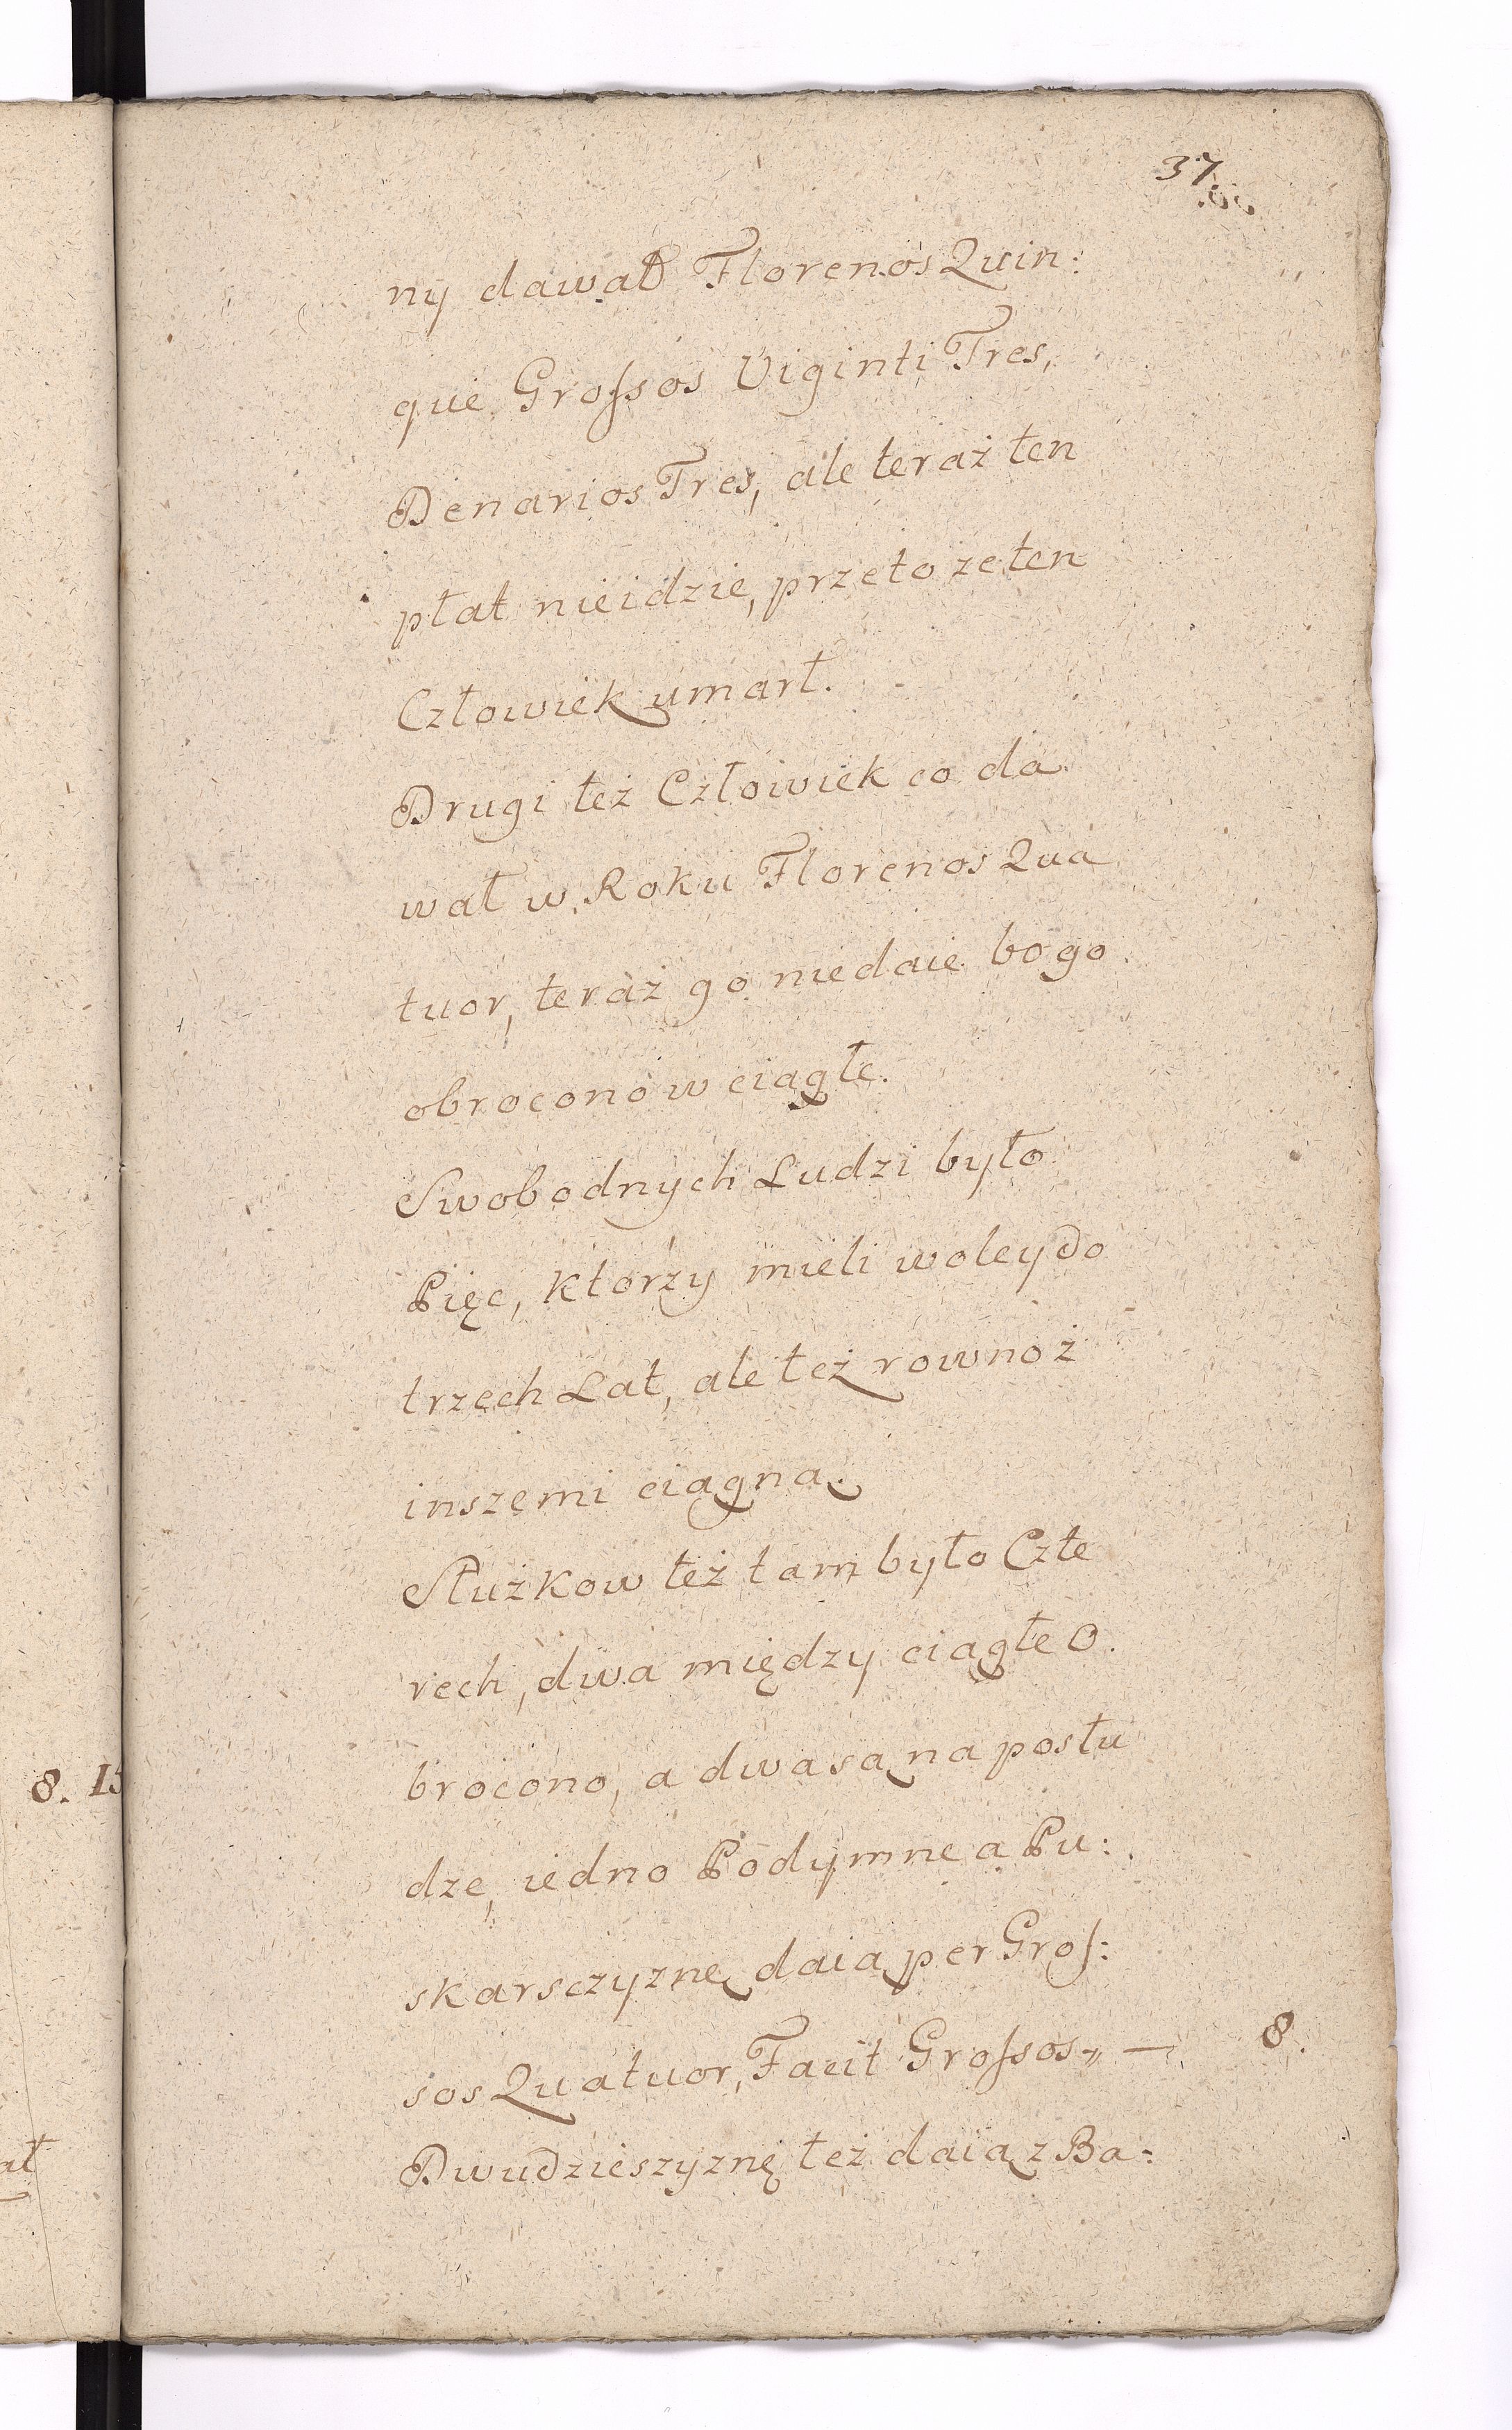 37.
ny dawał Florenos Quin:
que Grossos Viginti Tres,
Denarios Tres, ale teraz ten
płat nieidzie, przeto ze ten
Człowiek umarł.
Drugi też Człowiek co da
wał w Roku Florenos Qua
tuor, teraz go niedaie bo go
obrocono w ciągłe.
Swobodnych Ludzi było
Pięc, ktorzy mieli woley do
trzech Lat, ale też rowno ż
inszemi ciągną.
Służkow też tam było Czte
rech, dwa między ciągłe O
brocono, a dwa są na posłu
dze, iedno Podymne a Pu:
skarsczyznę daią per Gros:
sos Quatuor, Facit Grossos „ — 8.
Dwudzieszyznę też daią z Ba:
8. 15
ał